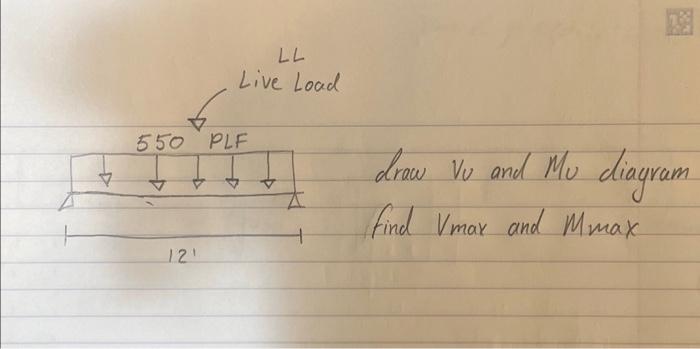 LL
Live Load
550 PLF
12'
draw Vu and Mu diagram
find Vmax and Mmax